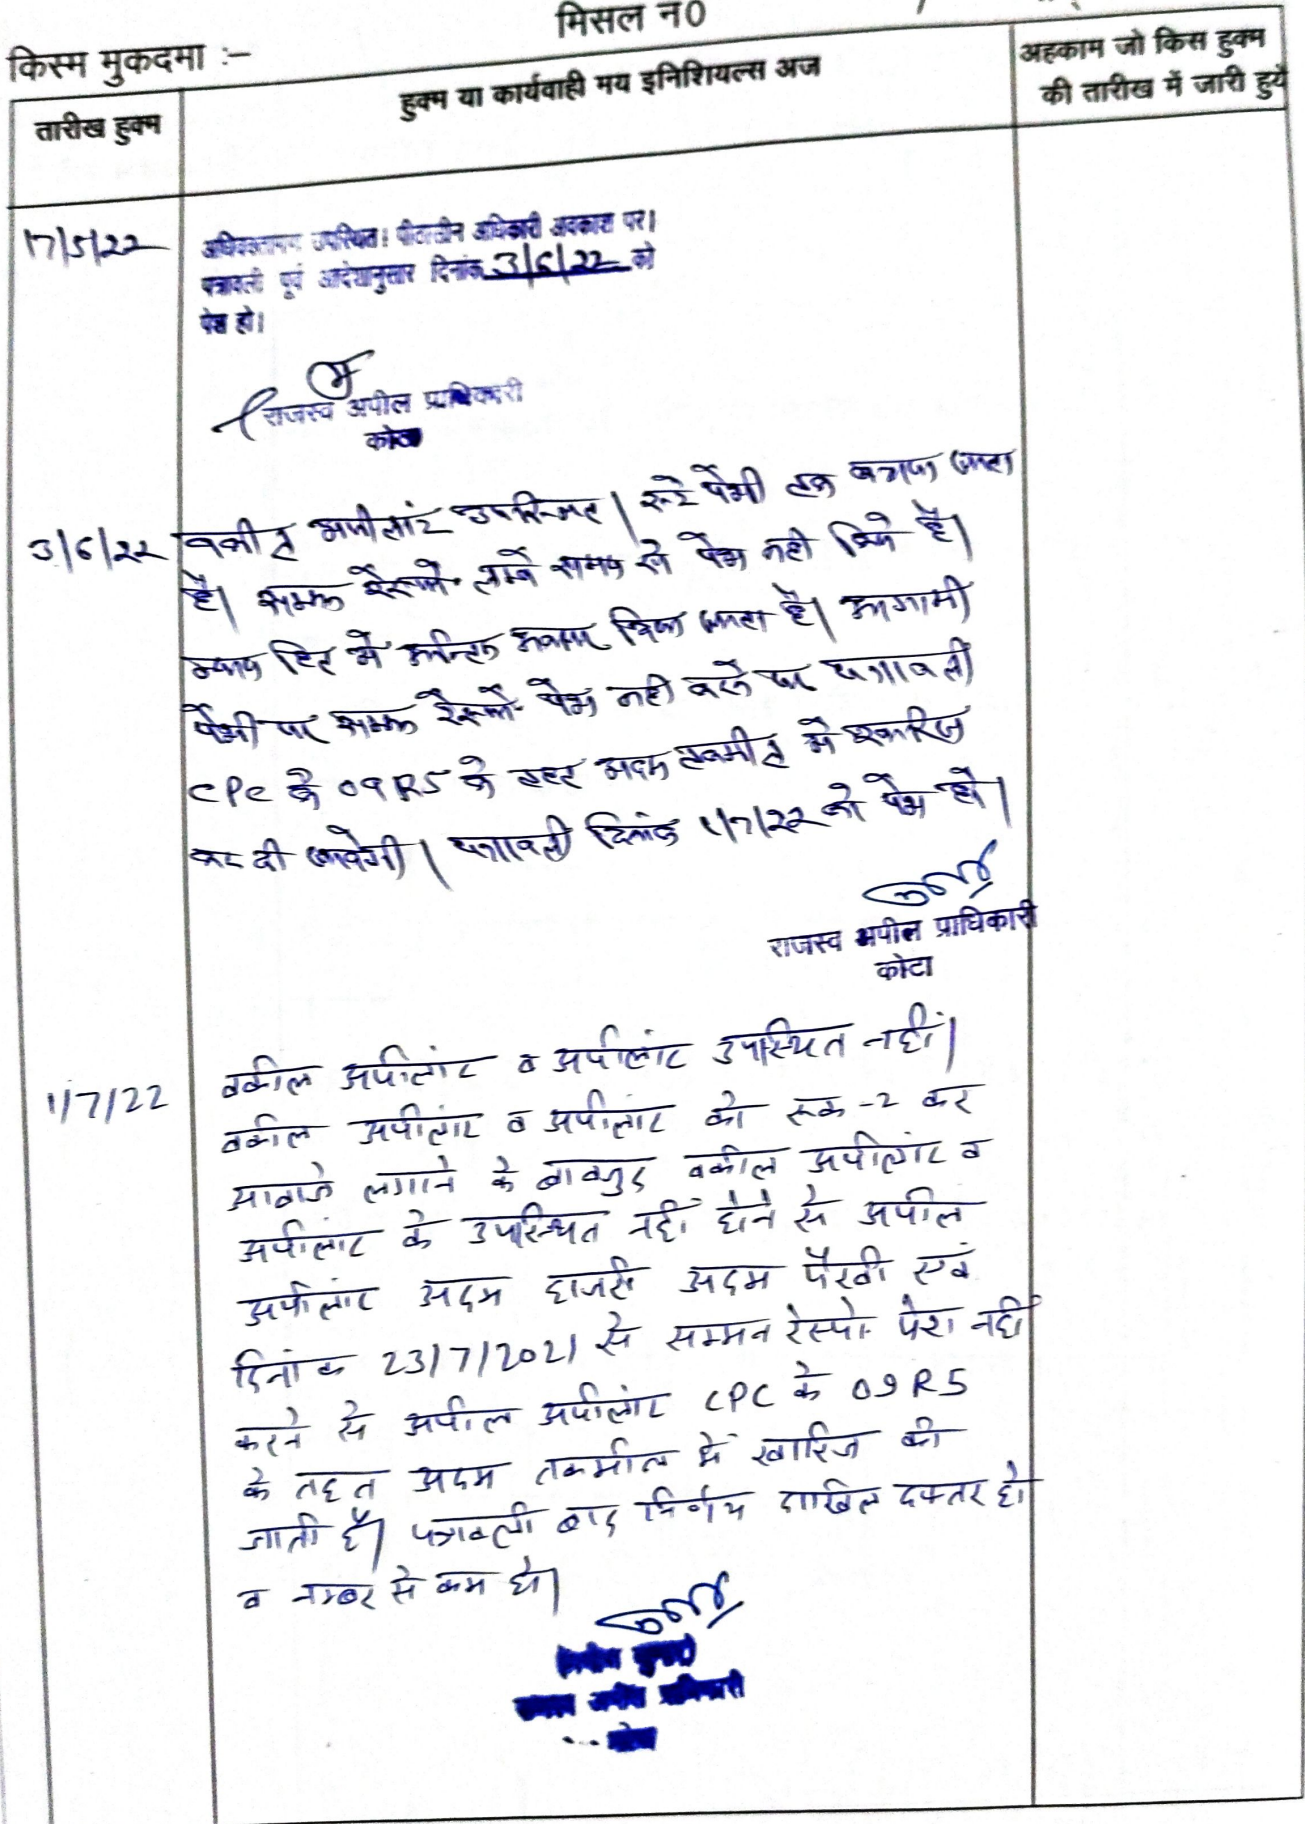 मिसल न0
किस्म मुकदमा :-
तारीख हुक्म
हुक्म या कार्यवाही मय इनिशियल्स अज
अहकाम जो किस हुक्म
की तारीख में जारी हुये
17/5/22
अधिवक्तागण उपस्थित। पीठासीन अधिकारी अवकाश पर।
पत्रावली पूर्व आदेशानुसार दिनांक 3/6/22 को
पेश हो।
राजस्व अपील प्राधिकारी
कोटा
3/6/22
वकील अपीलांट उपस्थित। पेशी तक जाता
है। सम्मन रेस्पो. लम्बे समय से पेश नहीं किये है।
न्याय हित में अन्तिम अवसर दिया जाता है। आगामी
पेशी पर सम्मन रेस्पो. पेश नहीं करने पर पत्रावली
CPC के 09R5 के तहत अदम तकमील में खारिज
कर दी जावेगी। पत्रावली दिनांक 1/7/22 को पेश हो।
राजस्व अपील प्राधिकारी
कोटा
1/7/22
वकील अपीलांट व अपीलांट उपस्थित नहीं।
वकील अपीलांट व अपीलांट को रूक-2 कर
आवाजे लगाने के बावजुद वकील अपीलांट व
अपीलांट के उपस्थित नहीं होने से अपील
अपीलांट अदम हाजरी अदम पैरवी एवं
दिनांक 23/7/2021 से सम्मन रेस्पो. पेश नहीं
करने से अपील अपीलांट CPC के 09R5
के तहत अदम तकमील में खारिज की
जाती है। पत्रावली बाद निर्णय दाखिल दफ्तर हो
व नम्बर से कम हो।
राजस्व अपील प्राधिकारी
कोटा